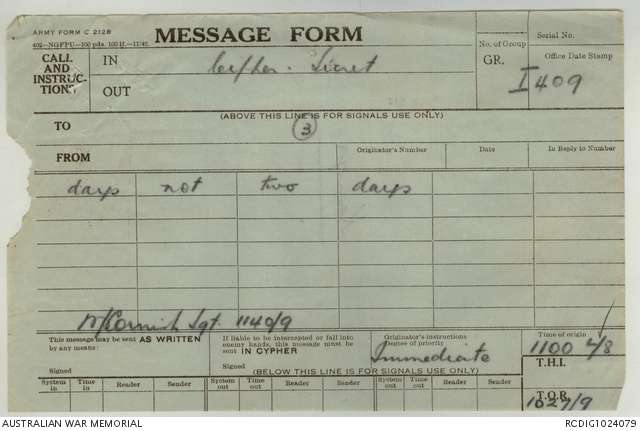 ARMY FORM C 212B
MESSAGE FORM
Serial No.
CALL AND INSTRUCTIONS
IN
Cypher - Secret
No. of Group
GR.
Office Date Stamp
I 409
OUT
(ABOVE THIS LINE IS FOR SIGNALS USE ONLY)
TO
3
FROM
Originator's Number
Date
In Reply to Number
days not two days
Sgt. 1140/9
This message may be sent AS WRITTEN
by any means:
Signed
If liable to be intercepted or fall into
enemy hands, this message must be
sent IN CYPHER
Signed
Originator's instructions
Degree of priority
Immediate
Time of origin
1100
T.H.I.
(BELOW THIS LINE IS FOR SIGNALS USE ONLY)
System in
Time in
Reader
Sender
System out
Time out
Reader
Sender
System out
Time out
Reader
Sender
T.O.R.
1027/9
AUSTRALIAN WAR MEMORIAL
RCDIG1024079